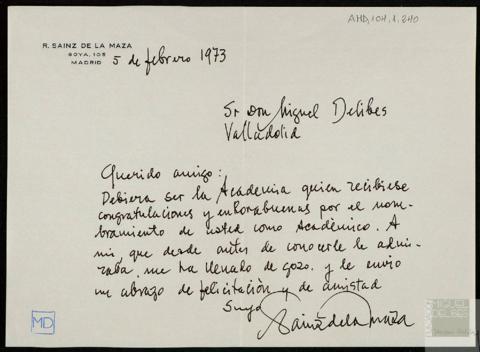 AMD,104,1,240
R. SAINZ DE LA MAZA
GOYA, 105
MADRID
5 de febrero 1973
Sr Don Miguel Delibes
Valladolid
Querido amigo:
Debiera ser la Academia quien recibiese
congratulaciones y enhorabuenas por el nom-
bramiento de usted como Académico. A
mi, que desde antes de conocerle le admi-
raba, me ha llenado de gozo. y le envio
un abrazo de felicitación y de amistad
Suyo
Sainz de la Maza
MD
MIGUEL
DELIBES